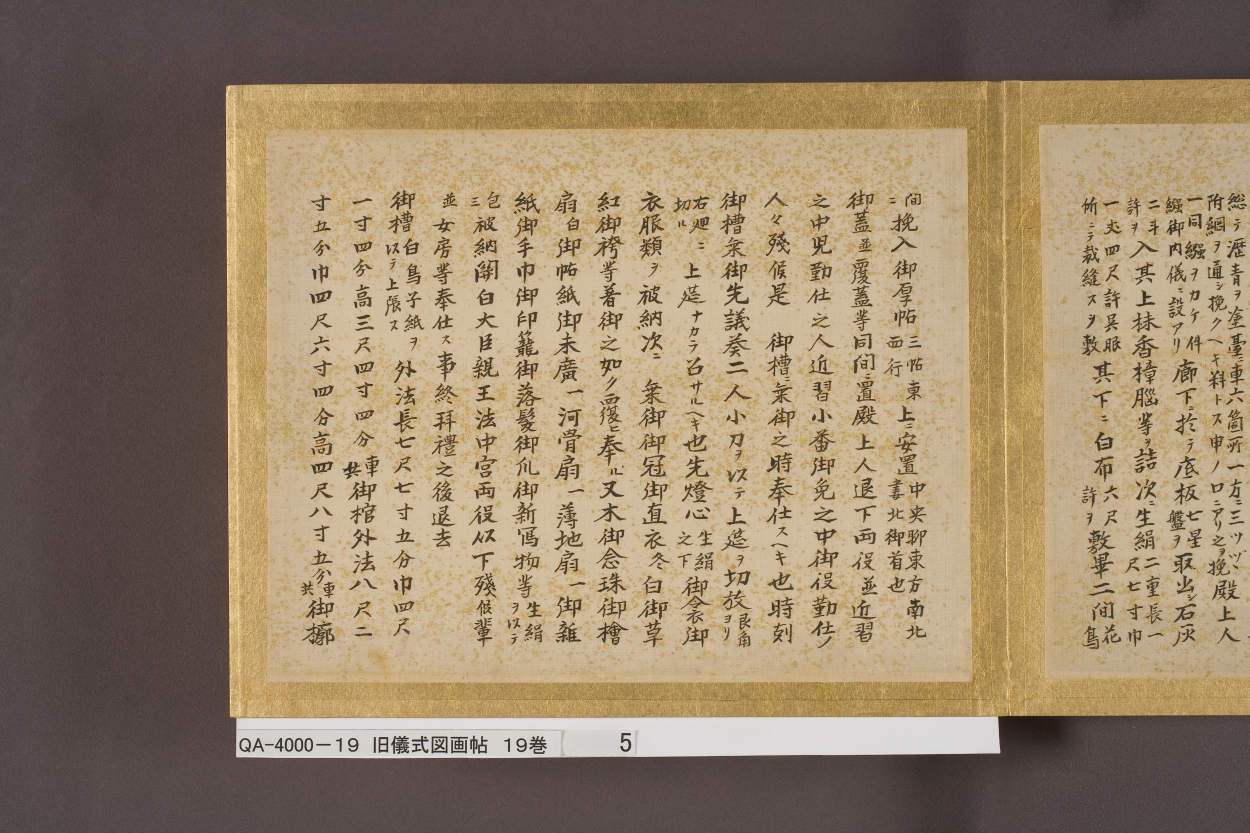 総テ瀝青ヲ塗臺ニ車六箇所一方ニ三ツヅヽ
附綱ヲ通シ挽クヘキ料トス申ノ口ニアリ之ヲ挽殿上人
一同綴ヲカケ件
綴御内儀ニ設アリ廊下ニ於テ底板七星艦ヲ取出シ石灰
二斗入其上抹香樟脳等ヲ詰次ニ生絹二重長一
許ヲ尺七寸巾
一丈四尺許呉服其下ニ白布六尺許ヲ敷畢二間花
所ニテ裁縫スヲ敷鳥
間ニ挽入御厚帖三帖東西行上ニ安置中央聊東方南北
妻北御首也
御蓋並覆蓋等同間ニ置殿上人退下両役並近習
之中児勤仕之人近習小番御免之中御役勤仕ノ
人々殘候是 御槽ニ乗御之時奉仕スヘキ也時刻
御槽乗御先議葵二人小刀ヲ以テ上莚ヲ切放艮角ヨリ
右廻ニ切ル 上莚ナカラ召サルヘキ也先燈心生絹之下御衾御
衣服類ヲ被納次ニ 乗御御冠御直衣冬白御草
紅御袴等着御之如ク覆ヒ奉ル又木御念珠御檜
扇白御帖紙御末廣一河骨扇一薄地扇一御雑
紙御手巾御印籠御落髪御爪御新冩物等生絹ヲ以テ
包三被納關白大臣親王法中宮両役以下殘候輩
並女房等奉仕ス事終拜禮之後退去
御槽白鳥子紙ヲ以テ上張ス 外法長七尺七寸五分巾四尺
一寸四分高三尺四寸四分車共御棺外法八尺二
寸五分巾四尺六寸四分高四尺八寸五分車共御槨
QA-4000-19 旧儀式図画帖 19巻 5